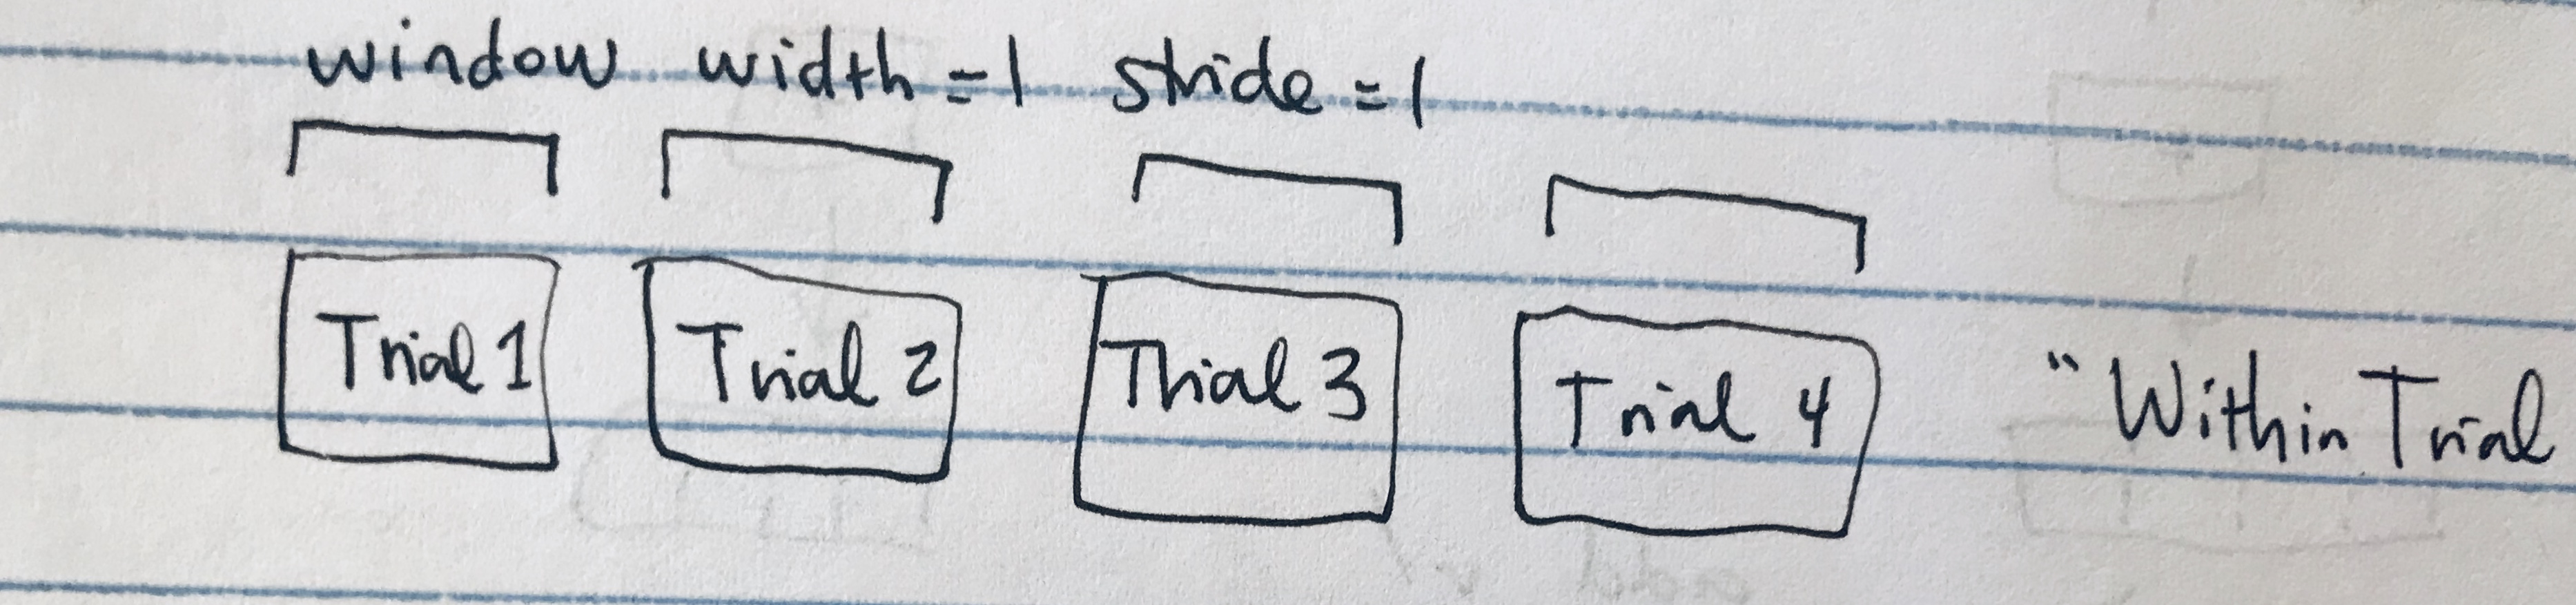 window width = 1 stride = 1
Trial 1 Trial 2 Trial 3 Trial 4 "Within Trial